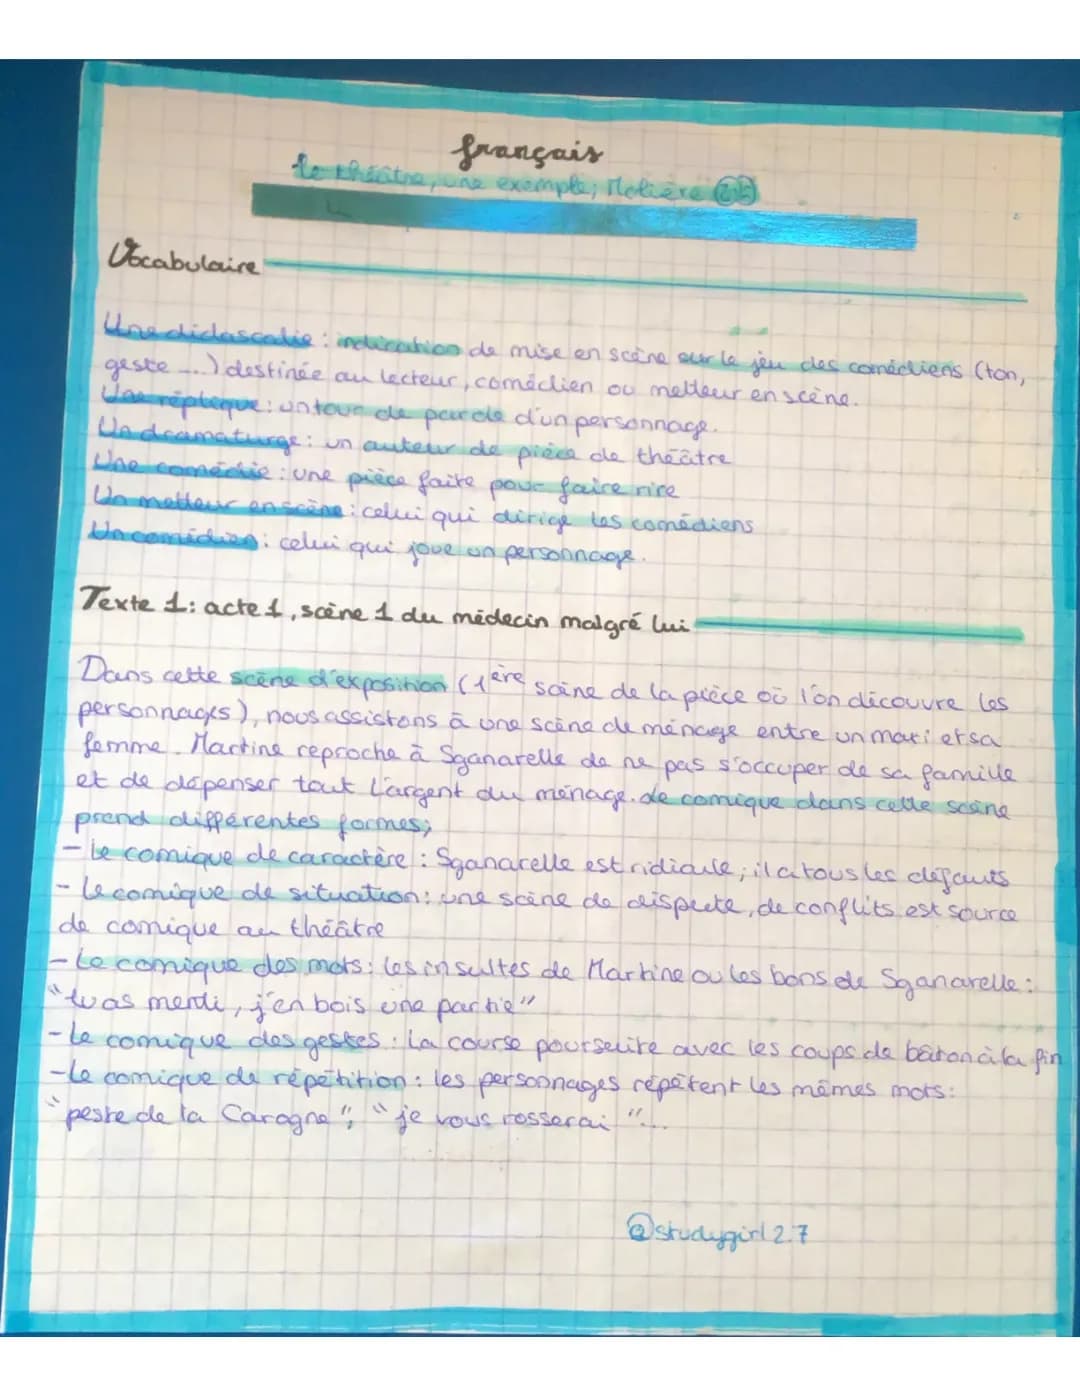 français
le théâtre, une exemple; Molière
Vocabulaire
Une didascalie : indication de mise en scène sur le jeu des comédiens (ton,
geste ...) destinée au lecteur, comédien ou metteur en scène.
Une réplique : un tour de parole d'un personnage.
Un dramaturge : un auteur de pièce de théâtre
Une comédie : une pièce faite pour faire rire
Un metteur en scène : celui qui dirige les comédiens
Un comédien : celui qui joue un personnage.
Texte 1 : acte 1, scène 1 du médecin malgré lui
Dans cette scène d'exposition (1ère scène de la pièce où l'on découvre les
personnages), nous assistons à une scène de ménage entre un mari et sa
femme. Martine reproche à Sganarelle de ne pas s'occuper de sa famille
et de dépenser tout l'argent du ménage. Le comique dans cette scène
prend différentes formes;
- Le comique de caractère : Sganarelle est ridicule; il a tous les défauts
- Le comique de situation : une scène de dispute, de conflits est source
de comique au théâtre
- Le comique des mots : les insultes de Martine ou les bons de Sganarelle :
"tu as menti, j'en bois une partie"
- Le comique des gestes : La course poursuite avec les coups de bâton à la fin
- Le comique de répétition : les personnages répètent les mêmes mots :
"peste de la Carogne", "je vous rosserai"...
@studygirl2.7